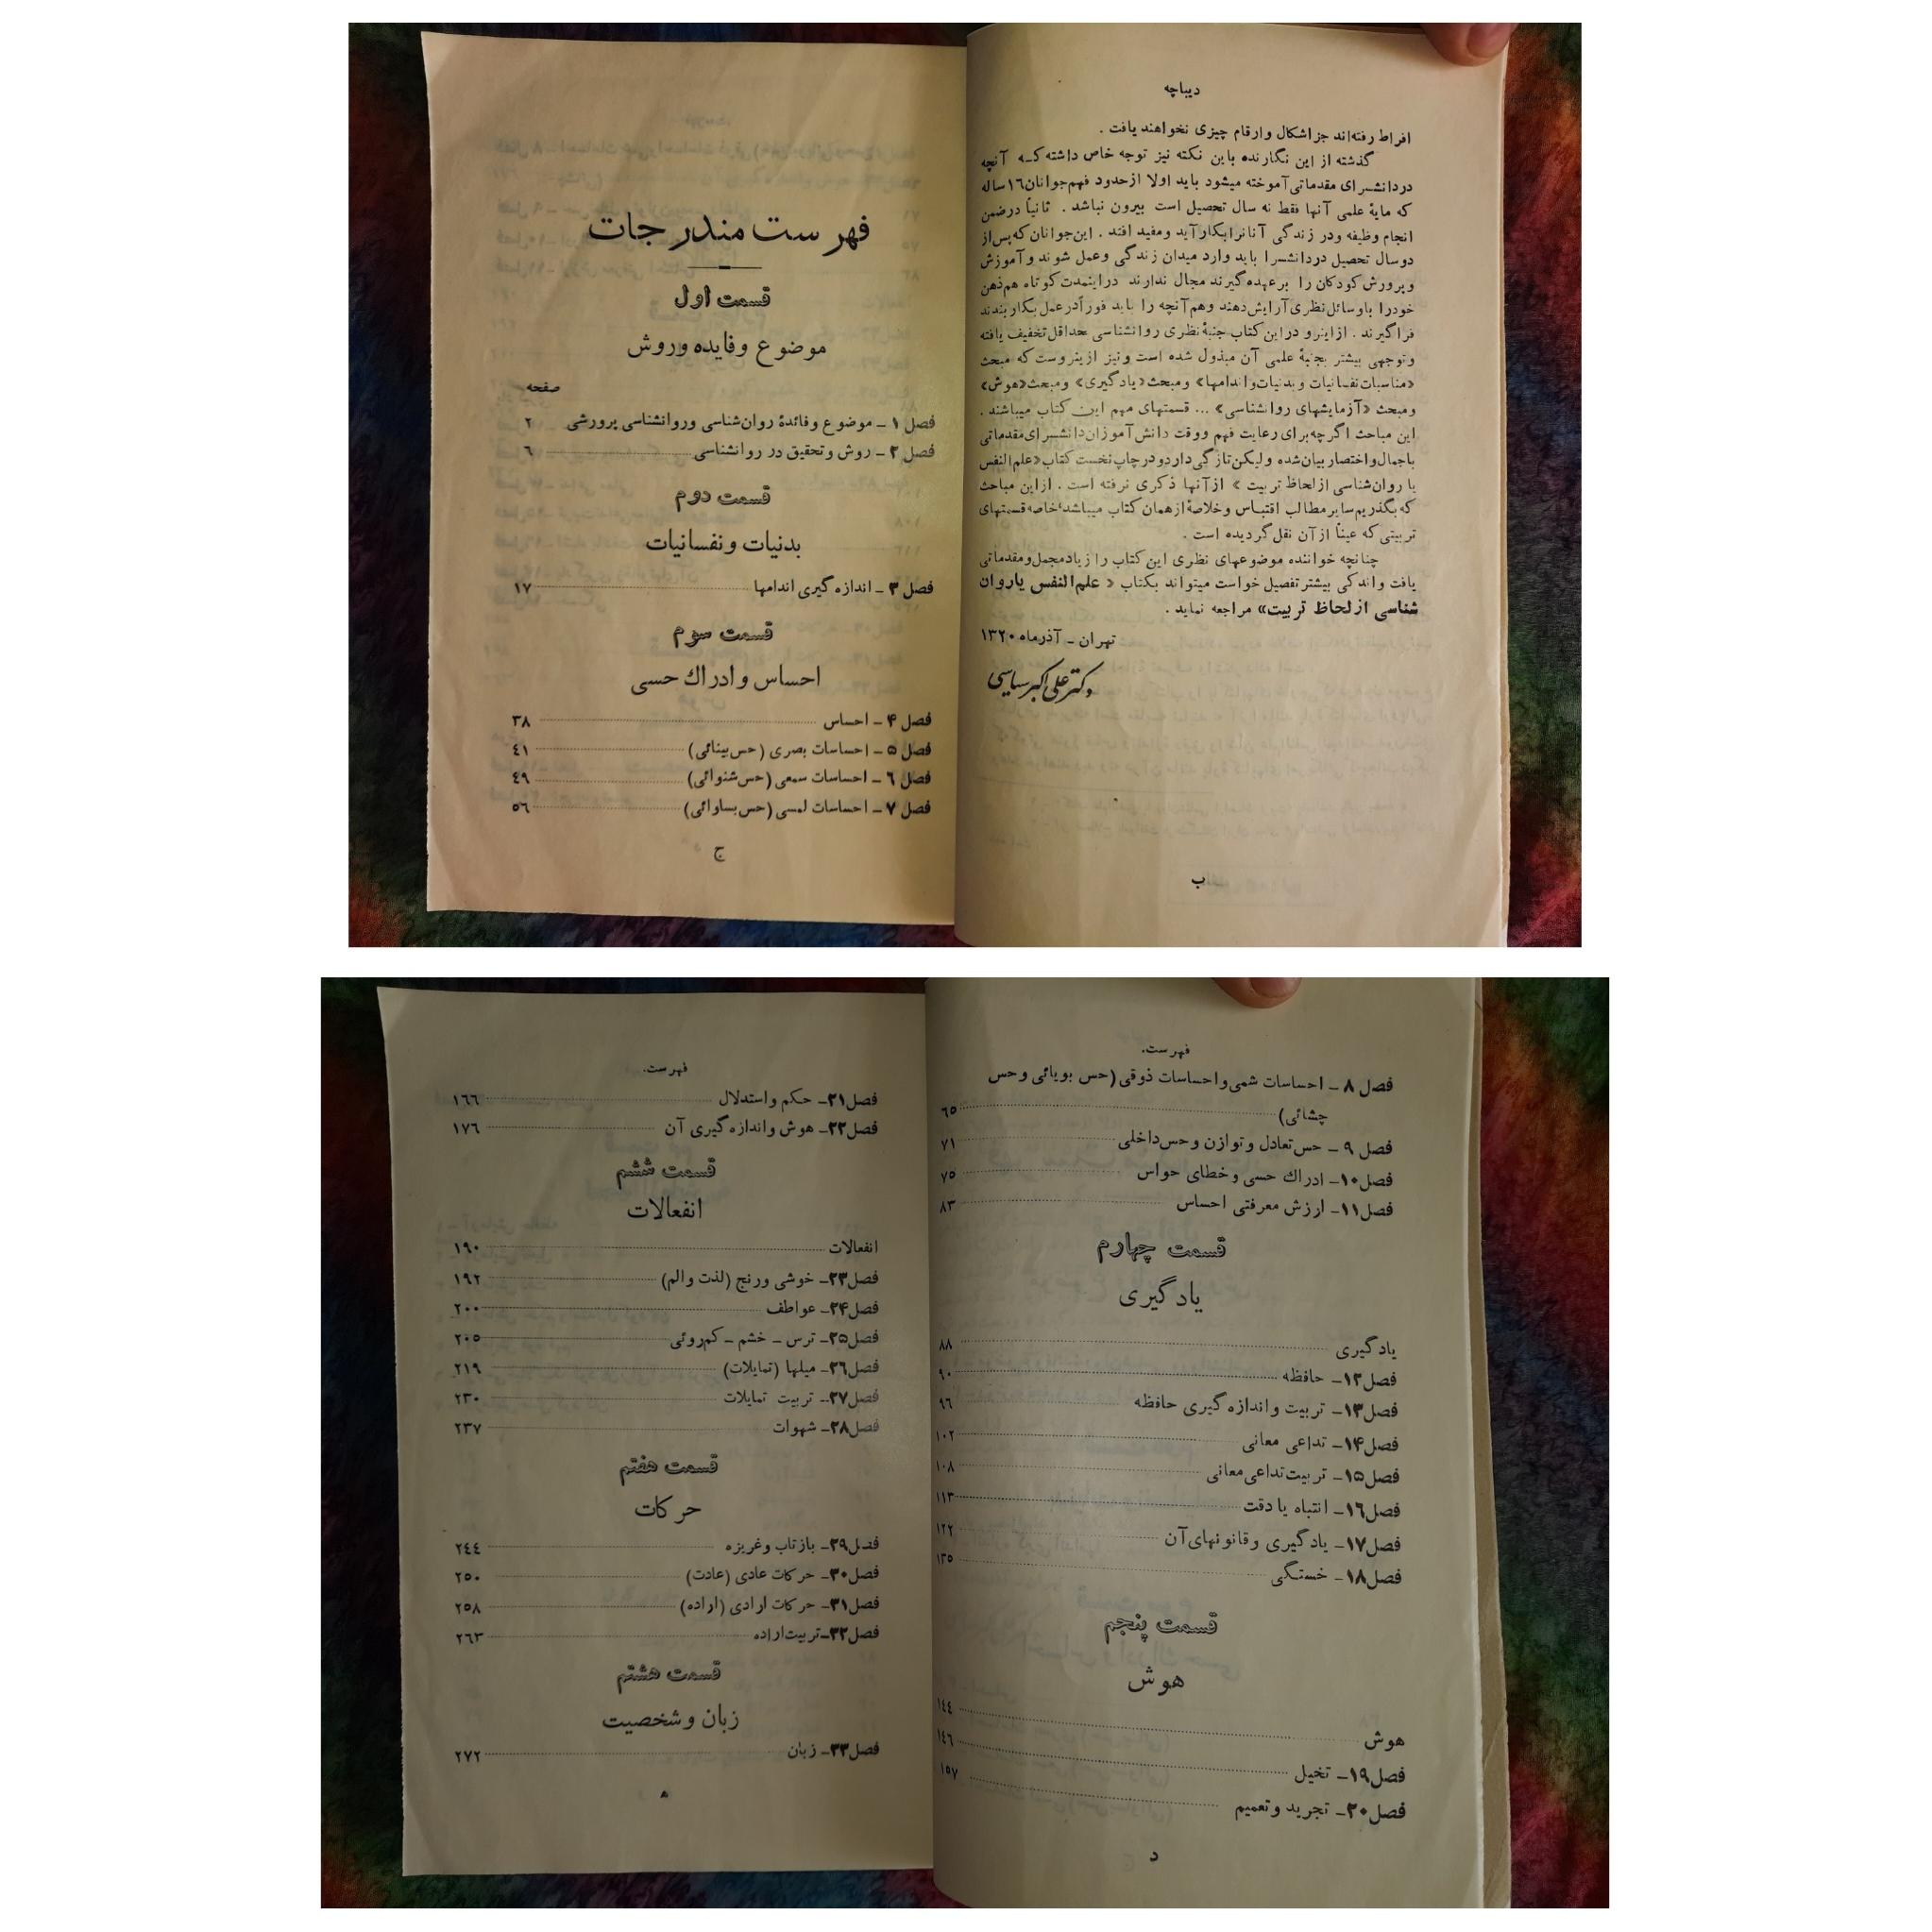 دیباچه
افراط رفته‌اند جز اشکال وارقام چیزی نخواهند یافت .
گذشته از این نگارنده باین نکته نیز توجه خاص داشته که آنچه
دردانشسرای مقدماتی آموخته میشود باید اولا ازحدود فهم جوانان ۱۶ ساله
که مایهٔ علمی آنها فقط نه سال تحصیل است بیرون نباشد . ثانیاً درضمن
انجام وظیفه ودر زندگی آنانرا بکار آید ومفید افتد . این جوانان که پس از
دوسال تحصیل دردانشسرا باید وارد میدان زندگی وعمل شوند وآموزش
وپرورش کودکان را برعهده گیرند مجال ندارند دراینمدت کوتاه هم ذهن
خودرا باوسائل نظری آرایش دهند وهم آنچه را باید فوراً درعمل بکار بندند
فراگیرند . ازاینرو دراین کتاب جنبهٔ نظری روانشناسی بحداقل تخفیف یافته
وتوجهی بیشتر بجنبهٔ علمی آن مبذول شده است ونیز ازینروست که مبحث
«مناسبات نفسانیات وبدنیات واندامها» ومبحث «یادگیری» ومبحث «هوش»
ومبحث «آزمایشهای روانشناسی» ... قسمتهای مهم این کتاب میباشند .
این مباحث اگرچه برای رعایت فهم ووقت دانش آموزان دانشسرای مقدماتی
باجمال واختصار بیان شده ولیکن تازگی دارد ودر چاپ نخست کتاب «علم النفس
یا روان‌شناسی ازلحاظ تربیت » ازآنها ذکری نرفته است . ازاین مباحث
که بگذریم سایر مطالب اقتباس وخلاصهٔ از همان کتاب میباشد، خاصه قسمتهای
تربیتی که عیناً از آن نقل گردیده است .
چنانچه خواننده موضوعهای نظری این کتاب را زیاد مجمل ومقدماتی
یافت واندکی بیشتر تفصیل خواست میتواند بکتاب « علم النفس یاروان
شناسی ازلحاظ تربیت» مراجعه نماید .
تهران ـ آذرماه ۱۳۲۰
دکتر علی اکبر سیاسی
ب
فهرست مندرجات
قسمت اول
موضوع وفایده وروش
صفحه
فصل ۱ ـ موضوع وفائدهٔ روان‌شناسی وروانشناسی پرورشی ۲
فصل ۲ ـ روش وتحقیق در روانشناسی ۶
قسمت دوم
بدنیات ونفسانیات
فصل ۳ ـ اندازه گیری اندامها ۱۷
قسمت سوم
احساس وادراك حسی
فصل ۴ ـ احساس ۳۸
فصل ۵ ـ احساسات بصری (حس بینائی) ٤۱
فصل ۶ ـ احساسات سمعی (حس شنوائی) ٤۹
فصل ۷ ـ احساسات لمسی (حس بساوائی) ۵۶
ج
فهرست.
فصل ۸ ـ احساسات شمی واحساسات ذوقی (حس بویائی وحس
چشائی) ۶۵
فصل ۹ ـ حس تعادل وتوازن وحس داخلی ۷۱
فصل ۱۰ـ ادراك حسی وخطای حواس ۷۵
فصل ۱۱ـ ارزش معرفتی احساس ۸۳
قسمت چهارم
یادگیری
یادگیری ۸۸
فصل ۱۲ـ حافظه ۹۰
فصل ۱۳ـ تربیت واندازه گیری حافظه ۹۶
فصل ۱۴ـ تداعی معانی ۱۰۲
فصل ۱۵ـ تربیت تداعی معانی ۱۰۸
فصل ۱۶ـ انتباه یا دقت ۱۱۳
فصل ۱۷ـ یادگیری وقانونهای آن ۱۲۲
فصل ۱۸ـ خستگی ۱۳۵
قسمت پنجم
هوش
هوش ۱٤٤
فصل ۱۹ـ تخیل ۱٤۶
فصل ۲۰ـ تجرید وتعمیم ۱۵۷
د
فهرست.
فصل ۲۱ـ حکم واستدلال ۱۶۶
فصل ۲۲ـ هوش واندازه گیری آن ۱۷۶
قسمت ششم
انفعالات
انفعالات ۱۹۰
فصل ۲۳ـ خوشی ورنج (لذت والم) ۱۹۲
فصل ۲۴ـ عواطف ۲۰۰
فصل ۲۵ـ ترس ـ خشم ـ کمروئی ۲۰۵
فصل ۲۶ـ میلها (تمایلات) ۲۱۹
فصل ۲۷ـ تربیت تمایلات ۲۳۰
فصل ۲۸ـ شهوات ۲۳۷
قسمت هفتم
حرکات
فصل ۲۹ـ بازتاب وغریزه ۲٤٤
فصل ۳۰ـ حرکات عادی (عادت) ۲۵۰
فصل ۳۱ـ حرکات ارادی (اراده) ۲۵۸
فصل ۳۲ـ تربیت اراده ۲۶۳
قسمت هشتم
زبان وشخصیت
فصل ۳۳ـ زبان ۲۷۲
ه